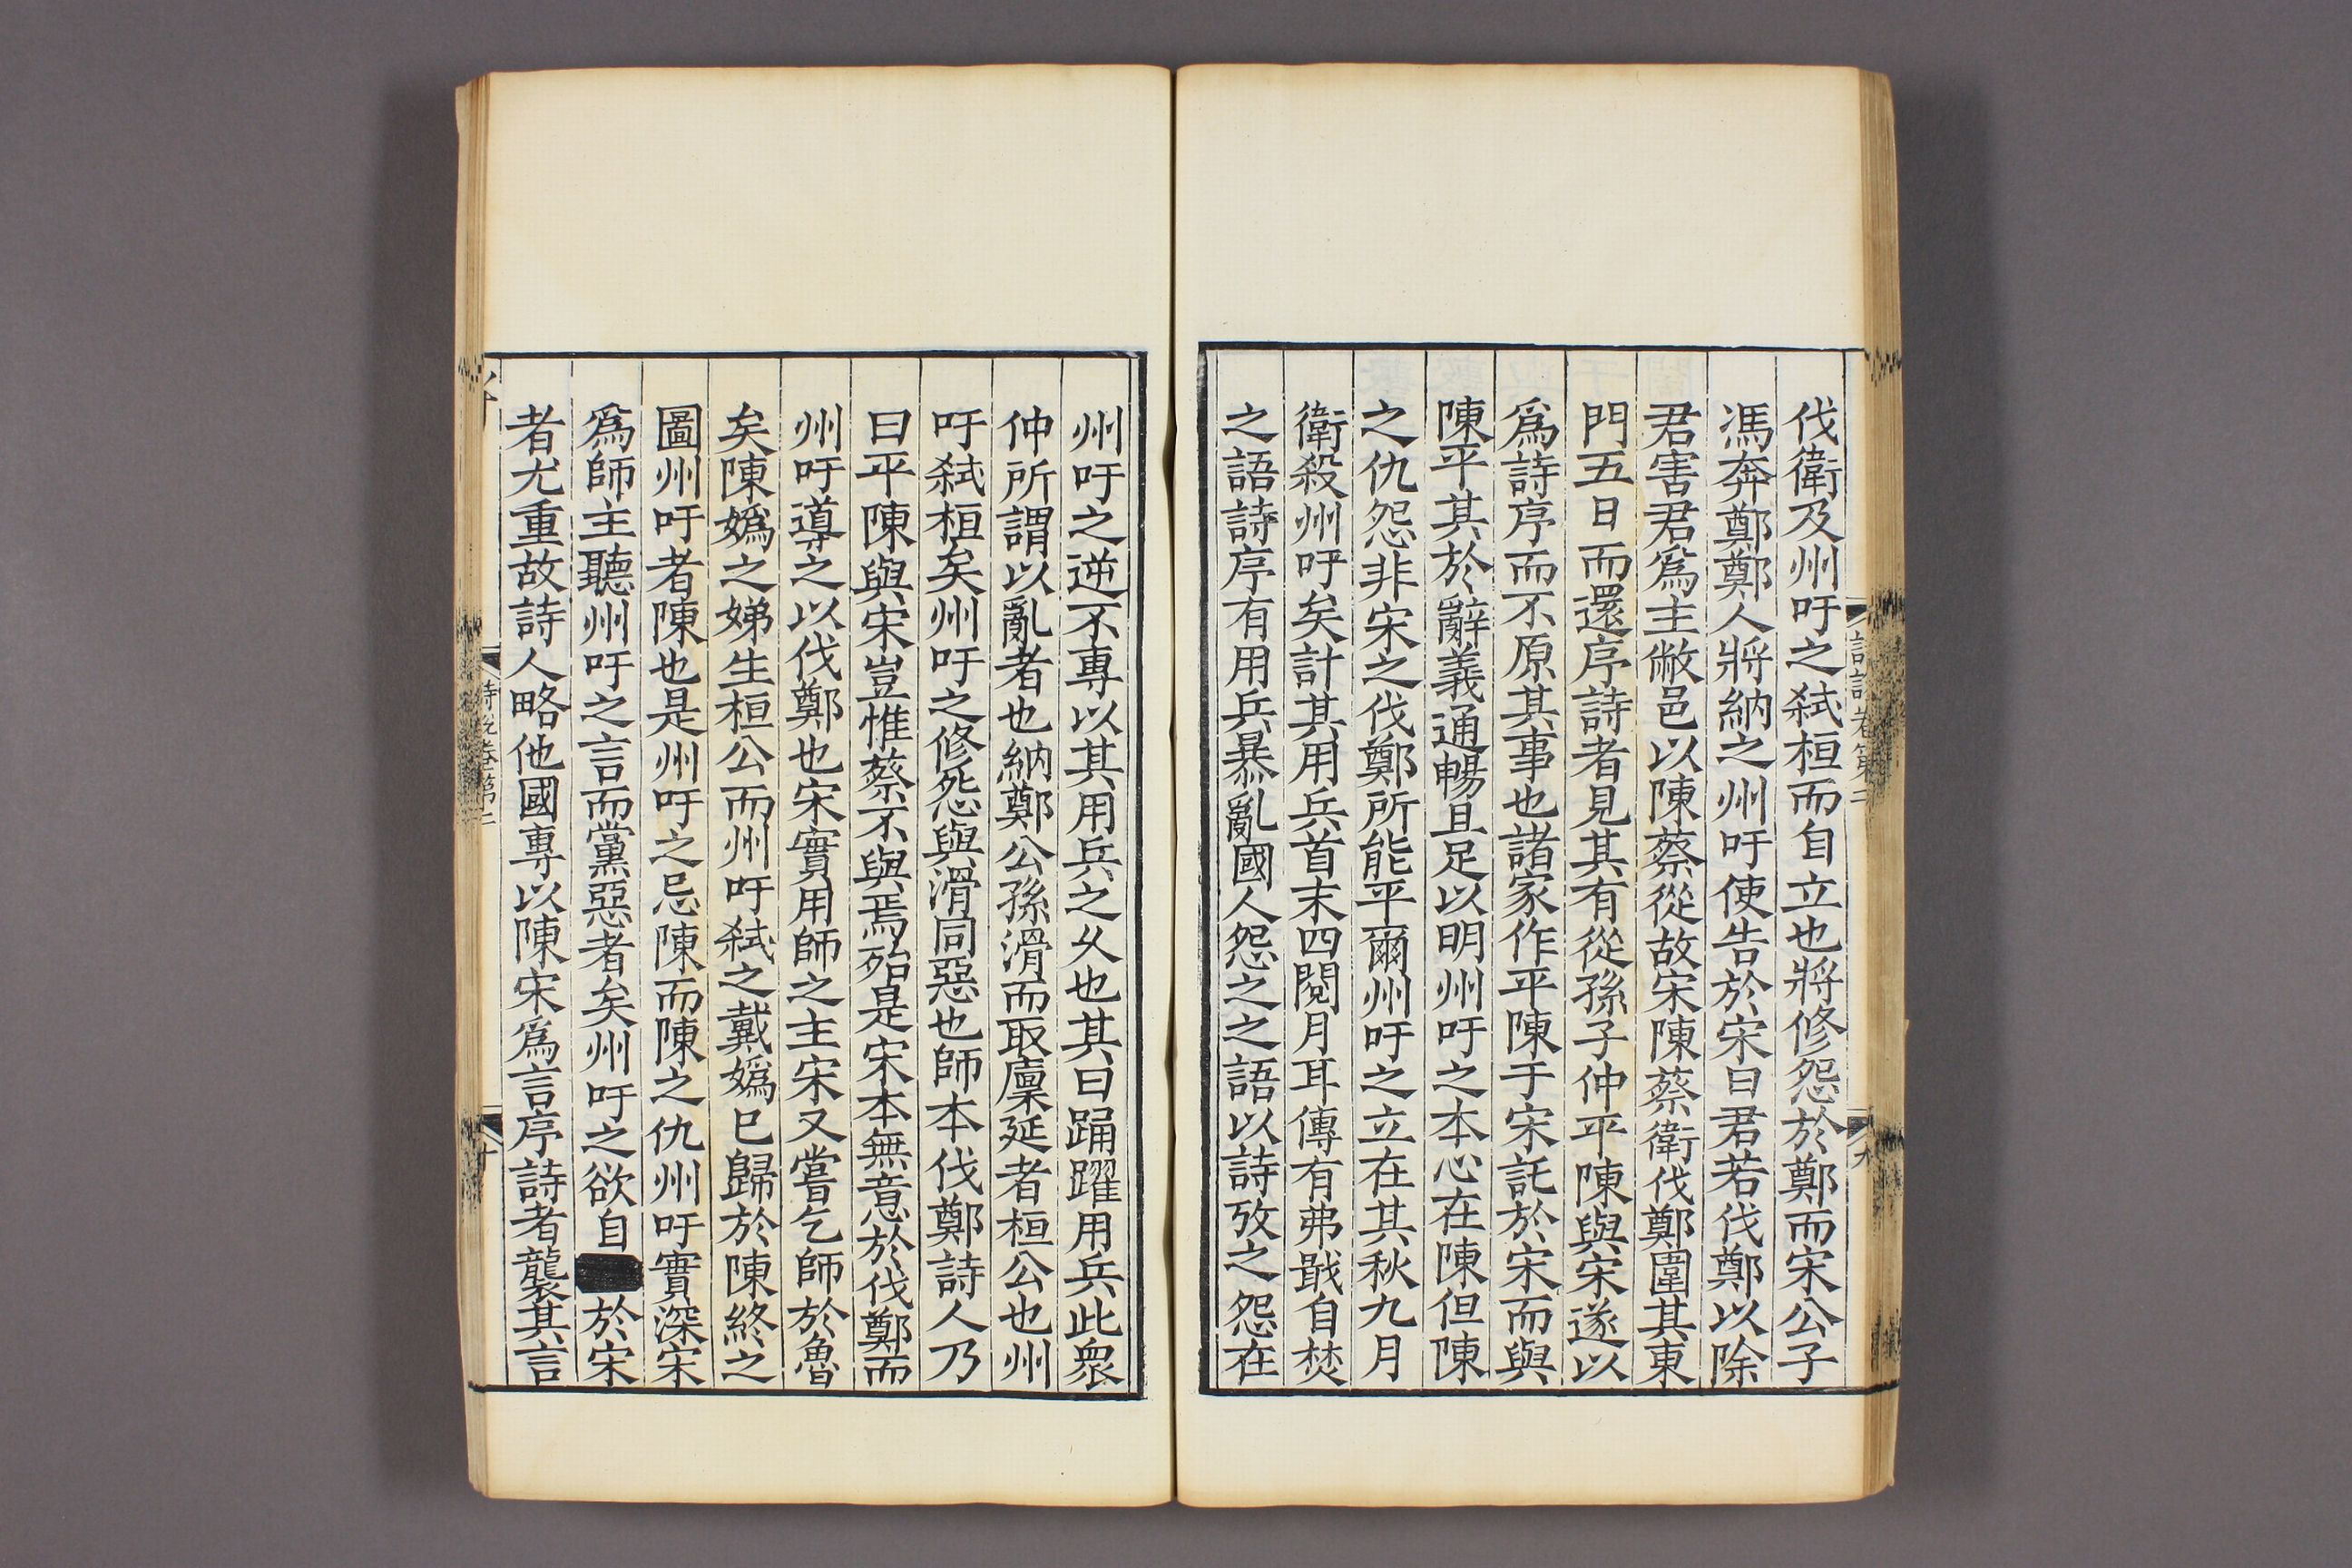 伐衛及州吁之弑桓而自立也將修怨於鄭而宋公子
馮奔鄭鄭人將納之州吁使告於宋曰君若伐鄭以除
君害君爲主敝邑以陳蔡從故宋陳蔡衛伐鄭圍其東
門五日而還序詩者見其有從孫子仲平陳與宋遂以
爲詩序而不原其事也諸家作平陳于宋託於宋而與
陳平其於辭義通暢且足以明州吁之本心在陳但陳
之仇怨非宋之伐鄭所能平爾州吁之立在其秋九月
衛殺州吁矣計其用兵首末四閱月耳傳有弗戢自焚
之語詩序有用兵暴亂國人怨之之語以詩攷之怨在
詩說卷第二
九
州吁之逆不專以其用兵之久也其曰踊躍用兵此衆
仲所謂以亂者也納鄭公孫滑而取廩延者桓公也州
吁弑桓矣州吁之修怨與滑同惡也師本伐鄭詩人乃
曰平陳與宋豈惟蔡不與焉殆是宋本無意於伐鄭而
州吁導之以伐鄭也宋實用師之主宋又嘗乞師於魯
矣陳嬀之娣生桓公而州吁弑之戴嬀已歸於陳終之
圖州吁者陳也是州吁之忌陳而陳之仇州吁實深宋
爲師主聽州吁之言而黨惡者矣州吁之欲自於宋
者尤重故詩人略他國專以陳宋爲言序詩者襲其言
詩說卷第二
十